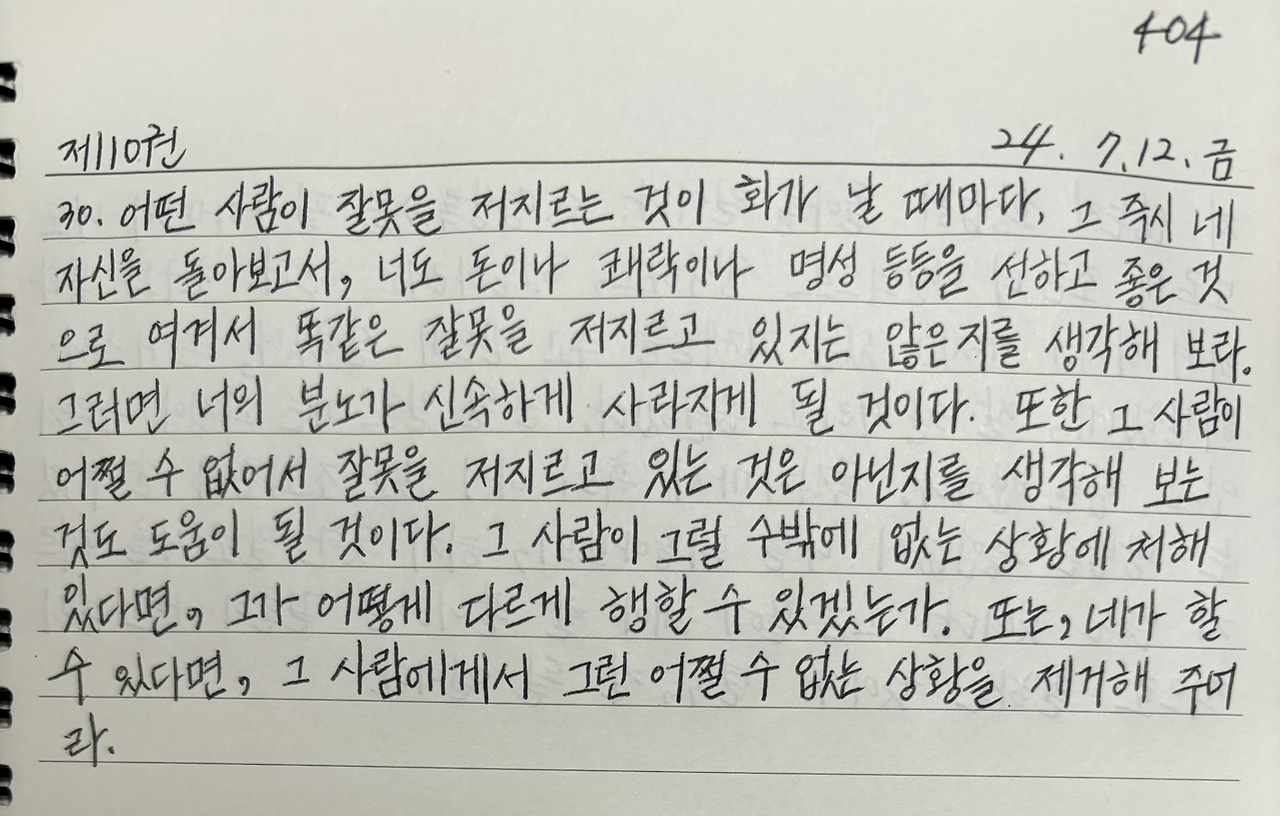 404
제10권 24. 7. 12. 금
30. 어떤 사람이 잘못을 저지르는 것이 화가 날 때마다, 그 즉시 네
자신을 돌아보고서, 너도 돈이나 쾌락이나 명성 등등을 선하고 좋은 것
으로 여겨서 똑같은 잘못을 저지르고 있지는 않은지를 생각해 보라.
그러면 너의 분노가 신속하게 사라지게 될 것이다. 또한 그 사람이
어쩔 수 없어서 잘못을 저지르고 있는 것은 아닌지를 생각해 보는
것도 도움이 될 것이다. 그 사람이 그럴 수밖에 없는 상황에 처해
있다면, 그가 어떻게 다르게 행할 수 있겠는가. 또는, 네가 할
수 있다면, 그 사람에게서 그런 어쩔 수 없는 상황을 제거해 주어
라.